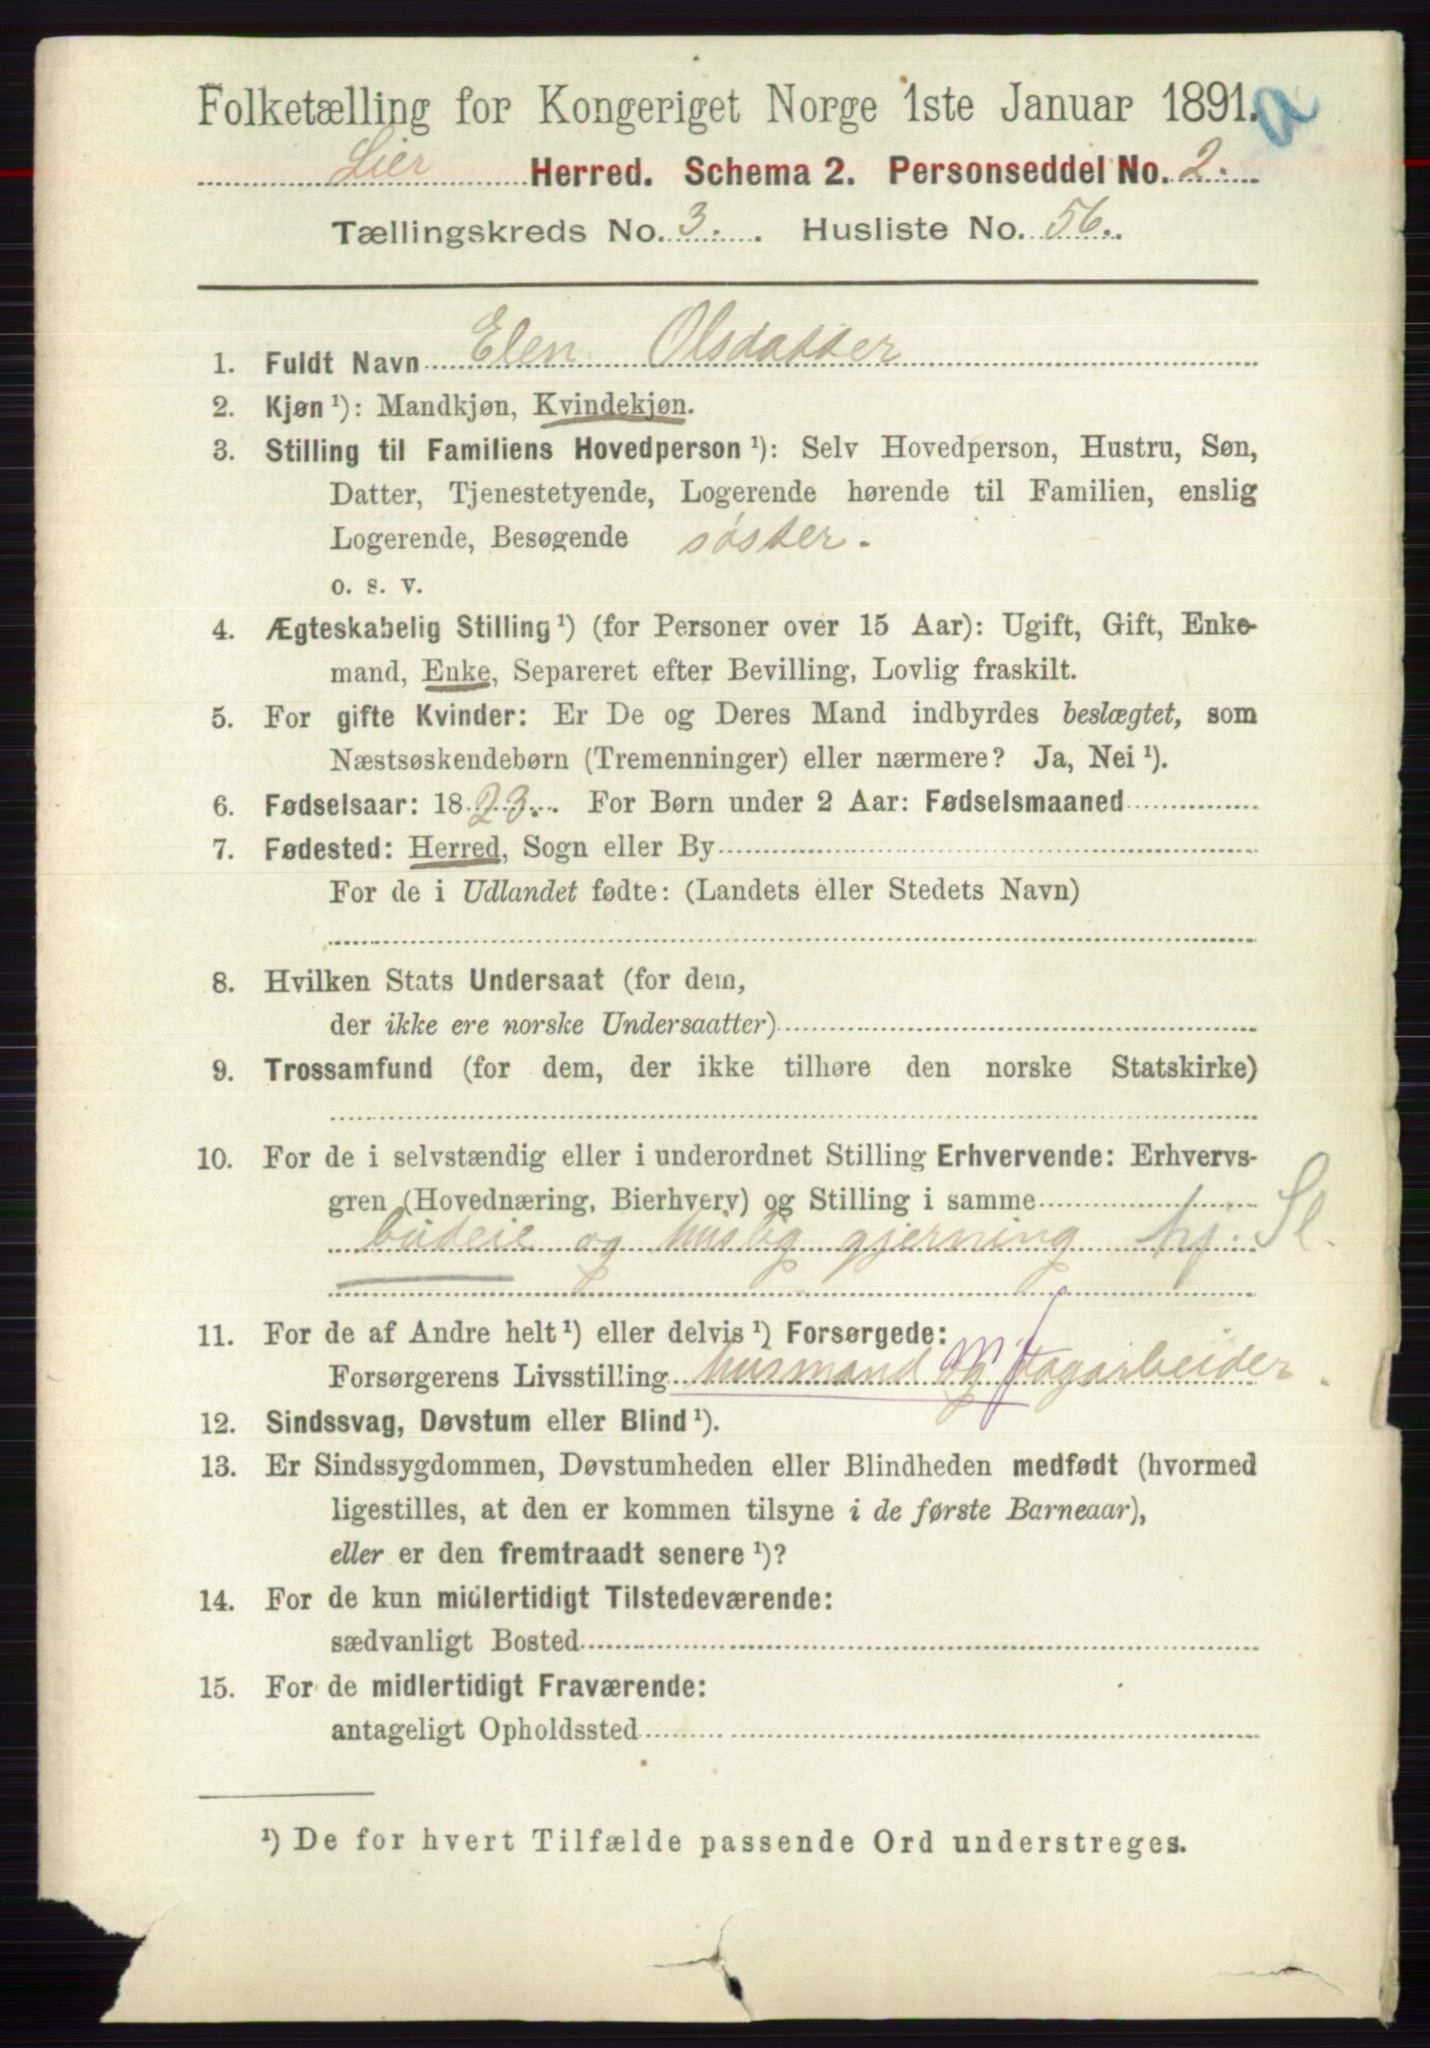 Folketælling for Kongeriget Norge 1ste Januar 1891. a
Lier Herred. Schema 2. Personseddel No. 2.
Tællingskreds No. 3. Husliste No. 56.
1. Fuldt Navn Elen Olsdatter
2. Kjøn ¹): Mandkjøn, Kvindekjøn.
3. Stilling til Familiens Hovedperson ¹): Selv Hovedperson, Hustru, Søn,
Datter, Tjenestetyende, Logerende hørende til Familien, enslig
Logerende, Besøgende søster.
o. s. v.
4. Ægteskabelig Stilling ¹) (for Personer over 15 Aar): Ugift, Gift, Enke-
mand, Enke, Separeret efter Bevilling, Lovlig fraskilt.
5. For gifte Kvinder: Er De og Deres Mand indbyrdes beslægtet, som
Næstsøskendebørn (Tremenninger) eller nærmere? Ja, Nei ¹).
6. Fødselsaar: 1823. For Børn under 2 Aar: Fødselsmaaned
7. Fødested: Herred, Sogn eller By
For de i Udlandet fødte: (Landets eller Stedets Navn)
8. Hvilken Stats Undersaat (for dem,
der ikke ere norske Undersaatter)
9. Trossamfund (for dem, der ikke tilhøre den norske Statskirke)
10. For de i selvstændig eller i underordnet Stilling Erhvervende: Erhvervs-
gren (Hovednæring, Bierhverv) og Stilling i samme
budeie og huslig gjerning hj. Sl.
11. For de af Andre helt ¹) eller delvis ¹) Forsørgede:
Forsørgerens Livsstilling husmand og dagarbeider.
12. Sindssvag, Døvstum eller Blind ¹).
13. Er Sindssygdommen, Døvstumheden eller Blindheden medfødt (hvormed
ligestilles, at den er kommen tilsyne i de første Barneaar),
eller er den fremtraadt senere ¹)?
14. For de kun midlertidigt Tilstedeværende:
sædvanligt Bosted
15. For de midlertidigt Fraværende:
antageligt Opholdssted
¹) De for hvert Tilfælde passende Ord understreges.